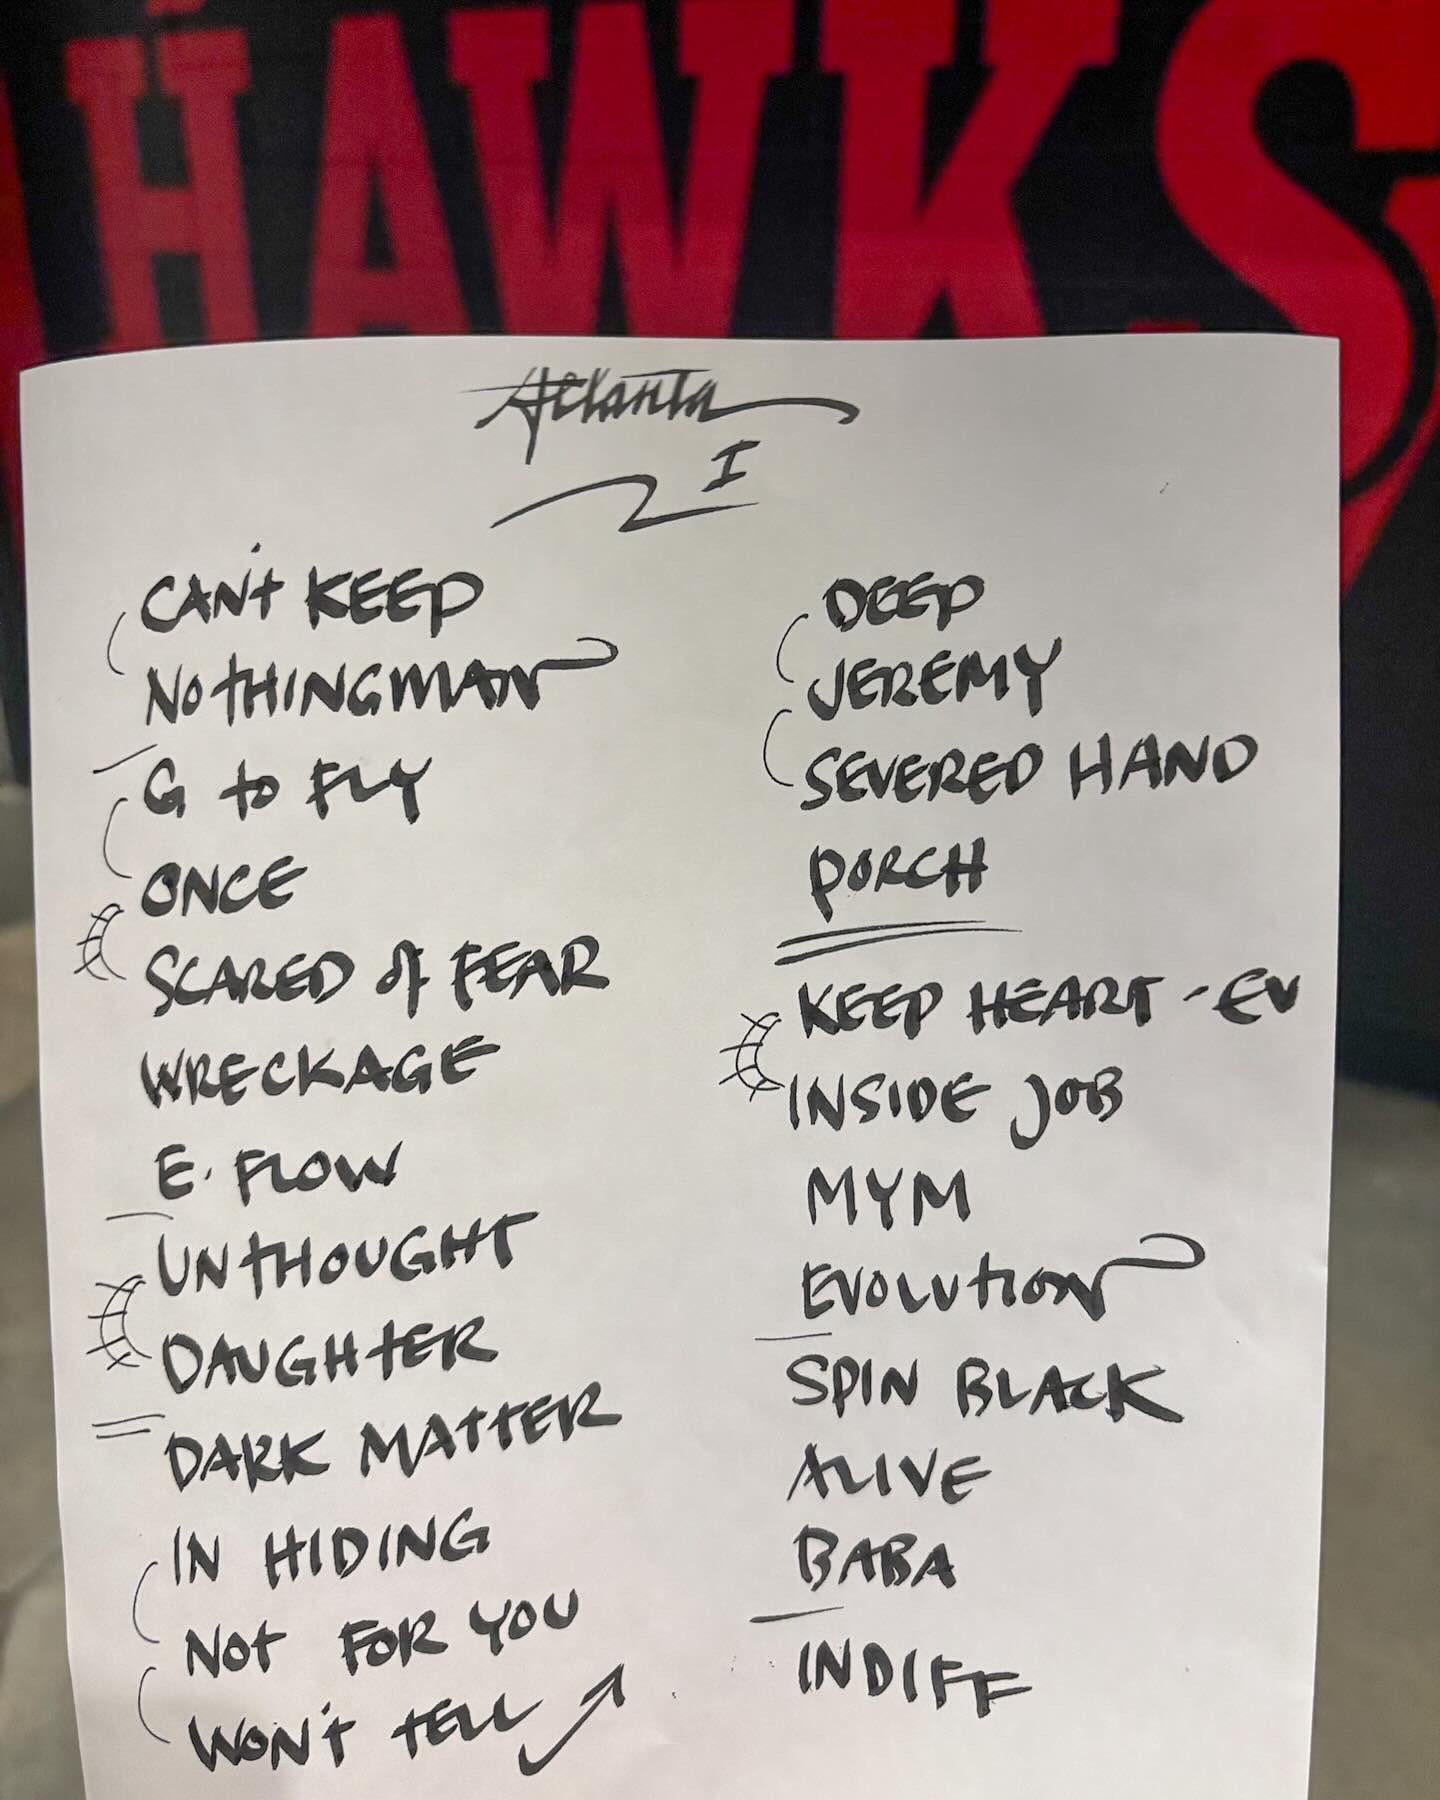 HAWKS
Atlanta
I
CAN'T KEEP
NOTHINGMAN
G to FLY
ONCE
SCARED of FEAR
WRECKAGE
E. FLOW
UNTHOUGHT
DAUGHTER
DARK MATTER
IN HIDING
NOT FOR YOU
WON'T TELL
DEEP
JEREMY
SEVERED HAND
PORCH
KEEP HEART - EV
INSIDE JOB
MYM
EVOLUTION
SPIN BLACK
ALIVE
BABA
INDIFF